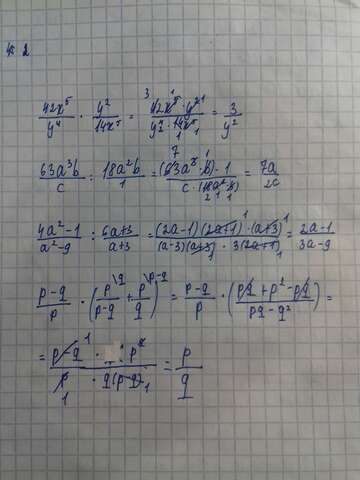 № 2
42x⁵/y⁴ · y²/14x⁵ = 42x⁵ · y²/y⁴ · 14x⁵ = 3/y²
63a³b/c : 18a²b/1 = (63a³ · b) · 1/c · (18a² · b) = 7a/2c
4a²-1/a²-9 : 6a+3/a+3 = (2a-1)(2a+1) · (a+3)/(a-3)(a+3) · 3(2a+1) = 2a-1/3a-9
p-q/p · (p\q/p-q + p\p-q/q) = p-q/p · (pq + p² - pq/pq - q²) =
= p-q · p²/p · q(p-q) = p/q